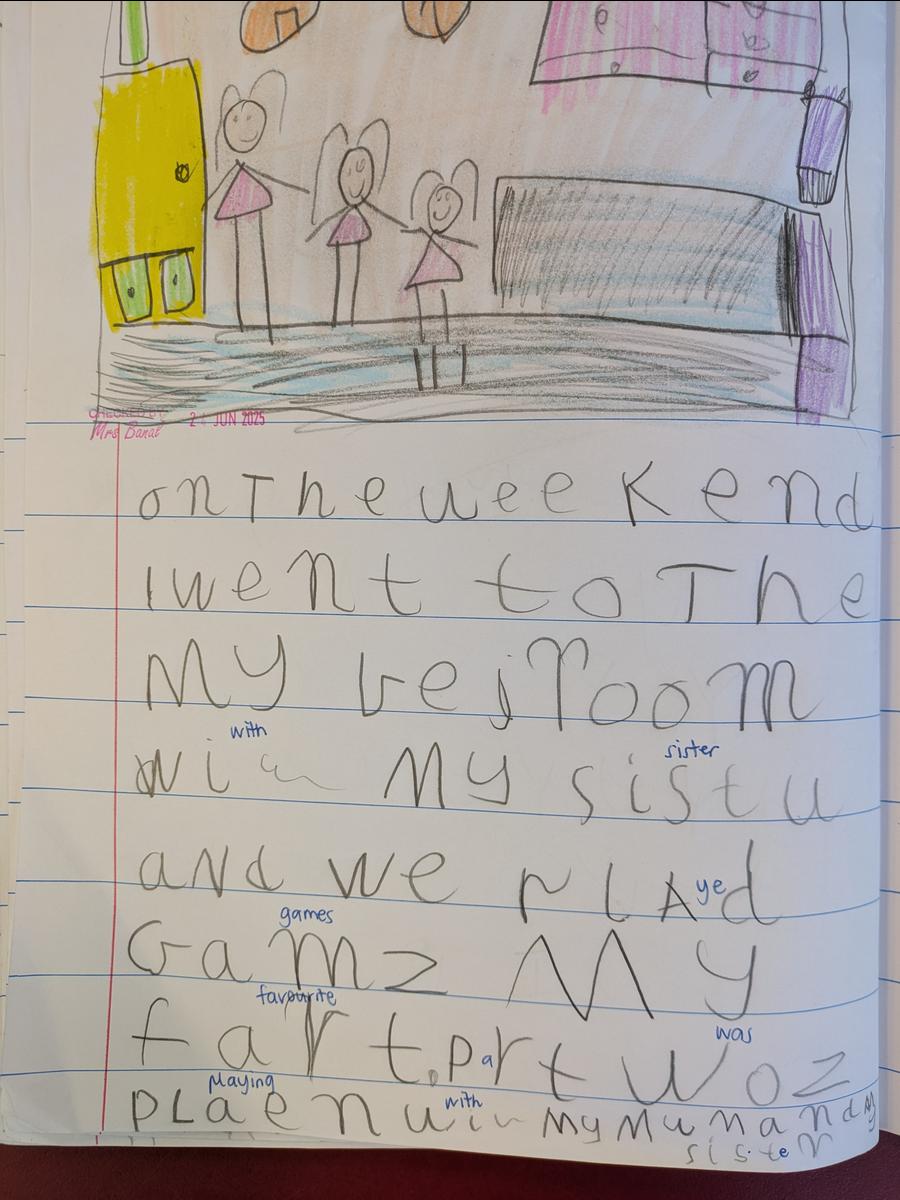 CHECKED BY
Mrs Banat
24 JUN 2025
on The weekend
I went to The
My bejroom
with
sister
wi My sistu
and we plAyed
games
Gamz My
favourite
was
fart.part woz
playing
with
PLaenu wi My Mum and My
sister